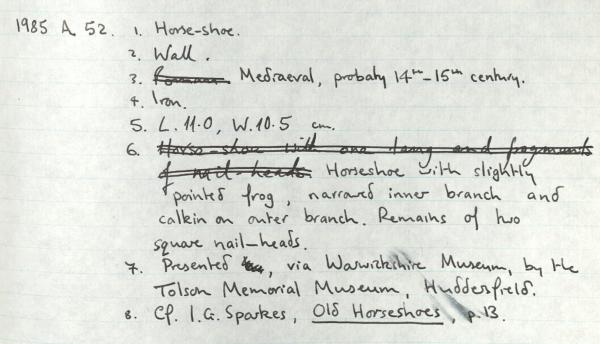 1985 A 52. 1. Horse-shoe.
2. Wall.
3. Roman Mediaeval, probaby 14th-15th century.
4. Iron.
5. L. 11.0, W. 10.5 cm.
6. Horse-shoe with one tang and fragments
of nail-heads Horseshoe with slightly
pointed frog, narrowed inner branch and
calkin on outer branch. Remains of two
square nail-heads.
7. Presented , via Warwickshire Museum, by the
Tolson Memorial Museum, Huddersfield.
8. Cf. I.G. Sparkes, Old Horseshoes, p.13.